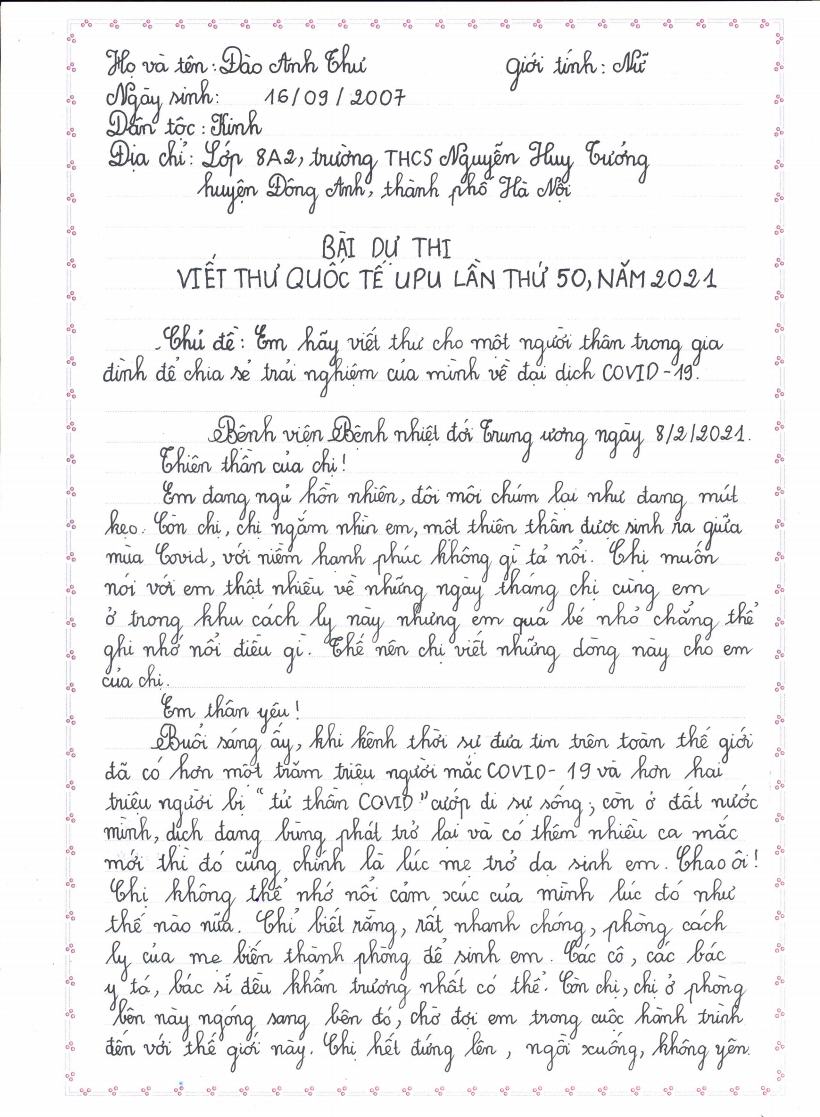 Họ và tên: Đào Anh Thư giới tính: Nữ
Ngày sinh: 16/09/2007
Dân tộc: Kinh
Địa chỉ: Lớp 8A2, trường THCS Nguyễn Huy Tưởng
huyện Đông Anh, thành phố Hà Nội
BÀI DỰ THI
VIẾT THƯ QUỐC TẾ UPU LẦN THỨ 50, NĂM 2021
Chủ đề: Em hãy viết thư cho một người thân trong gia
đình để chia sẻ trải nghiệm của mình về đại dịch COVID-19.
Bệnh viện Bệnh nhiệt đới Trung ương ngày 8/2/2021.
Thiên thần của chị!
Em đang ngủ hồn nhiên, đôi môi chúm lại như đang mút
kẹo. Còn chị, chị ngắm nhìn em, một thiên thần được sinh ra giữa
mùa Covid, với niềm hạnh phúc không gì tả nổi. Chị muốn
nói với em thật nhiều về những ngày tháng chị cùng em
ở trong khu cách ly này nhưng em quá bé nhỏ chẳng thể
ghi nhớ nổi điều gì. Thế nên chị viết những dòng này cho em
của chị.
Em thân yêu!
Buổi sáng ấy, khi kênh thời sự đưa tin trên toàn thế giới
đã có hơn một trăm triệu người mắc COVID-19 và hơn hai
triệu người bị "tử thần COVID" cướp đi sự sống; còn ở đất nước
mình, dịch đang bùng phát trở lại và có thêm nhiều ca mắc
mới thì đó cũng chính là lúc mẹ trở dạ sinh em. Chao ôi!
Chị không thể nhớ nổi cảm xúc của mình lúc đó như
thế nào nữa. Chỉ biết rằng, rất nhanh chóng, phòng cách
ly của mẹ biến thành phòng để sinh em. Các cô, các bác
y tá, bác sĩ đều khẩn trương nhất có thể. Còn chị, chị ở phòng
bên này ngóng sang bên đó, chờ đợi em trong cuộc hành trình
đến với thế giới này. Chị hết đứng lên, ngồi xuống, không yên.